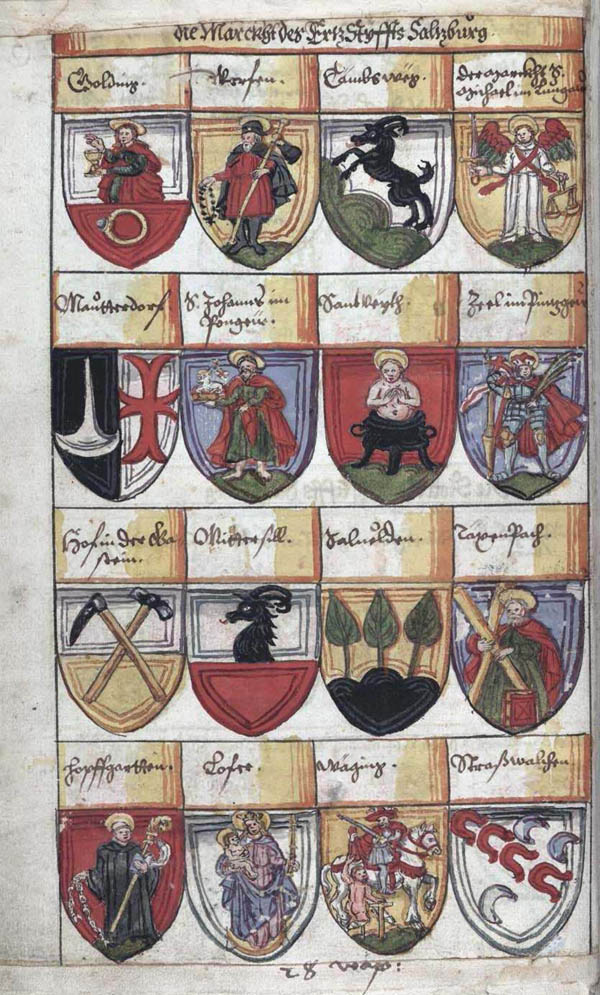 die Marckht des Ertz Styffts Saltzburg.
Golding.
Werfen.
Tambsweg.
der Marckht S.
Michael im Lungau
Mautterdorf
S. Johanns im
Pongew.
Sanct Veyth.
Zeel im Pinzgew
Hof in der Ga
stein.
Mittersill.
Salvelden.
Taxenpach.
Hopffgartten.
Lofer.
Waging.
Straßwalchen.
28 wap: